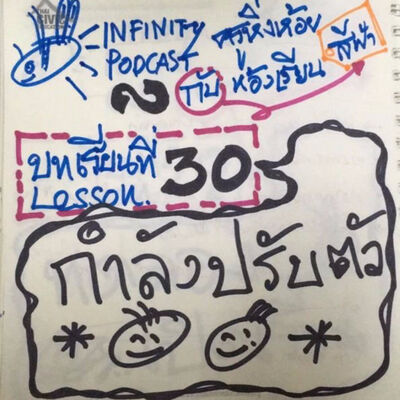 THAI CIVIC EDUCATION
INFINITY
PODCAST
หิ่งห้อย
กับ ห้องเรียน สีฟ้า
บทเรียนที่
Lesson. 30
กำลังปรับตัว